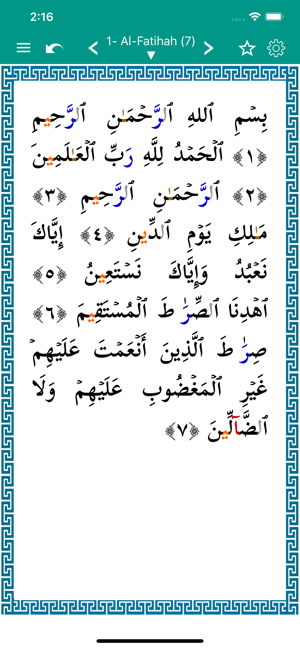 2:16
1- Al-Fatihah (7)
بِسۡمِ ٱللهِ ٱلرَّحۡمَـٰنِ ٱلرَّحِيمِ
﴿١﴾ ٱلۡحَمۡدُ لِلَّهِ رَبِّ ٱلۡعَـٰلَمِينَ
﴿٢﴾ ٱلرَّحۡمَـٰنِ ٱلرَّحِيمِ ﴿٣﴾
مَـٰلِكِ يَوۡمِ ٱلدِّينِ ﴿٤﴾ إِيَّاكَ
نَعۡبُدُ وَإِيَّاكَ نَسۡتَعِينُ ﴿٥﴾
ٱهۡدِنَا ٱلصِّرَٰطَ ٱلۡمُسۡتَقِيمَ ﴿٦﴾
صِرَٰطَ ٱلَّذِينَ أَنۡعَمۡتَ عَلَيۡهِمۡ
غَيۡرِ ٱلۡمَغۡضُوبِ عَلَيۡهِمۡ وَلَا
ٱلضَّآلِّينَ ﴿٧﴾